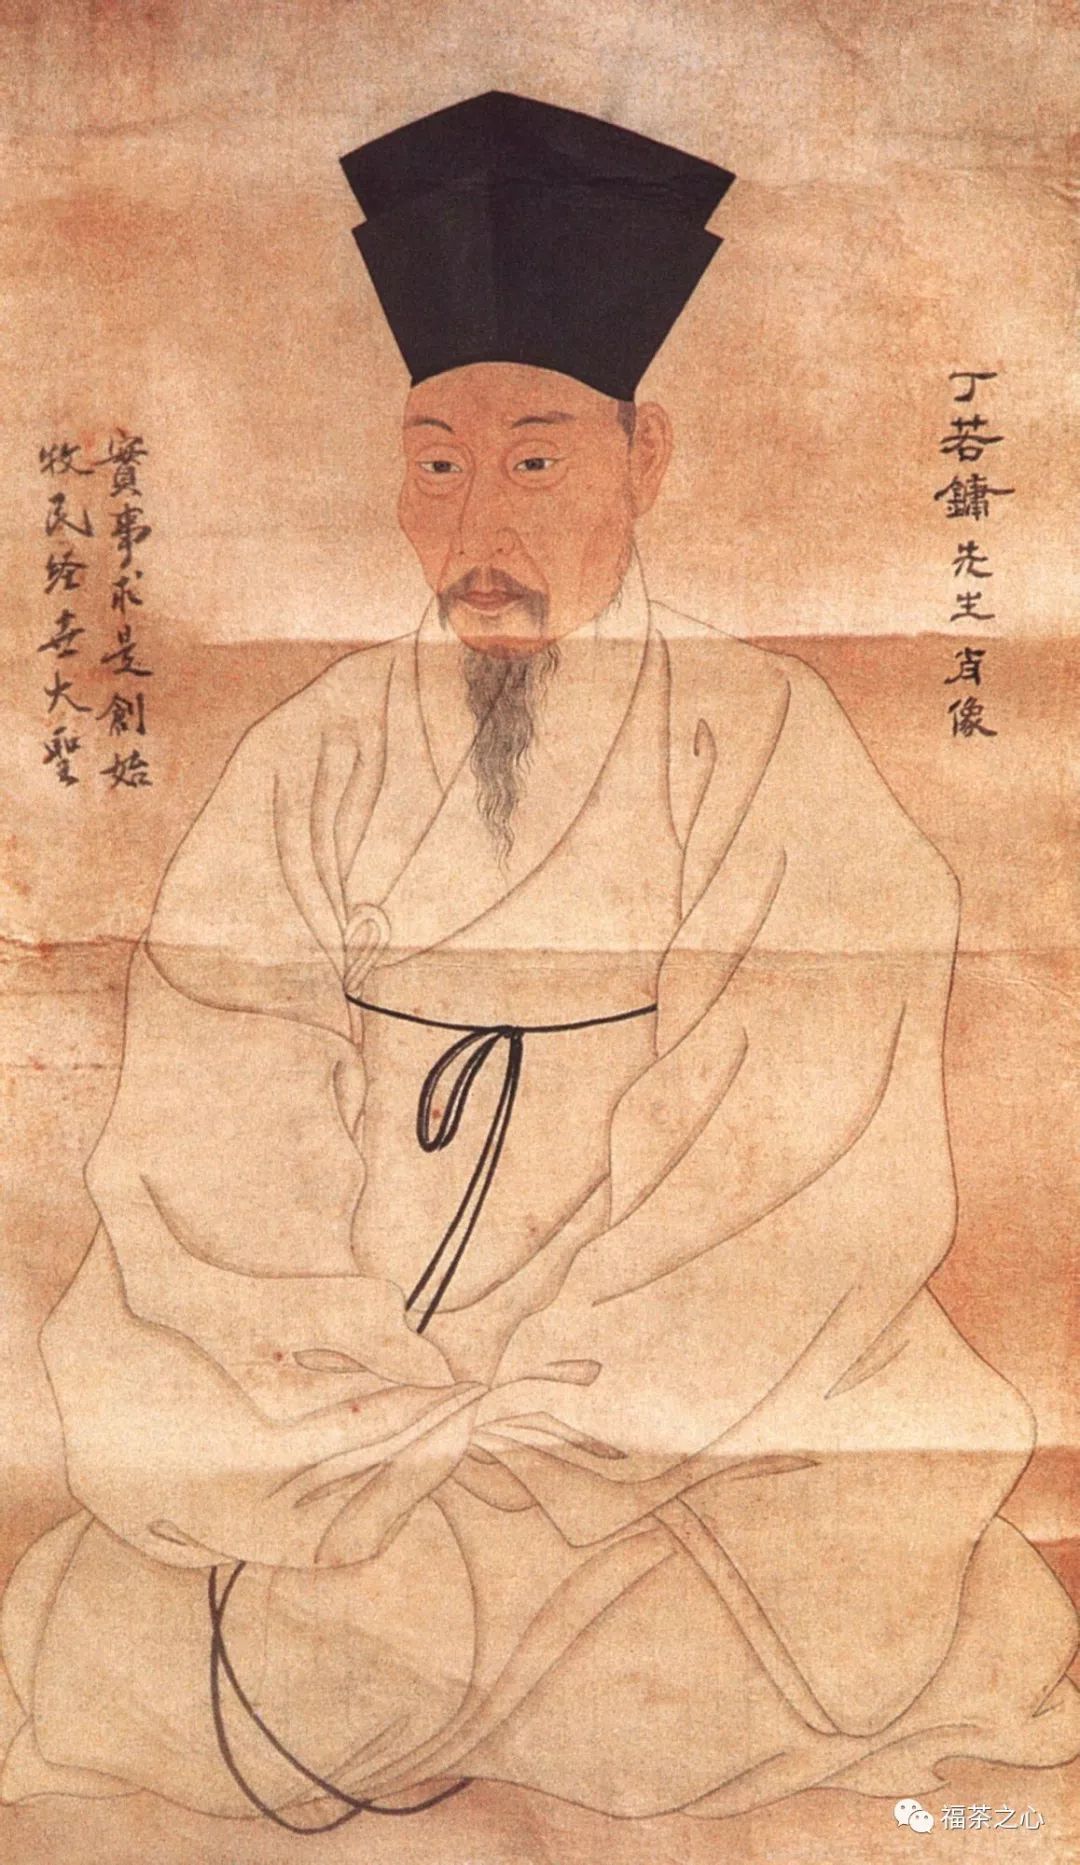 丁若鏞先生肖像
實事求是創始
牧民经世大聖
福茶之心